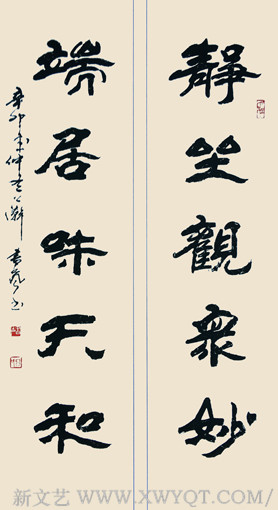 靜坐觀衆妙
端居味天和
新文艺 WWW.XWYQT.COM/